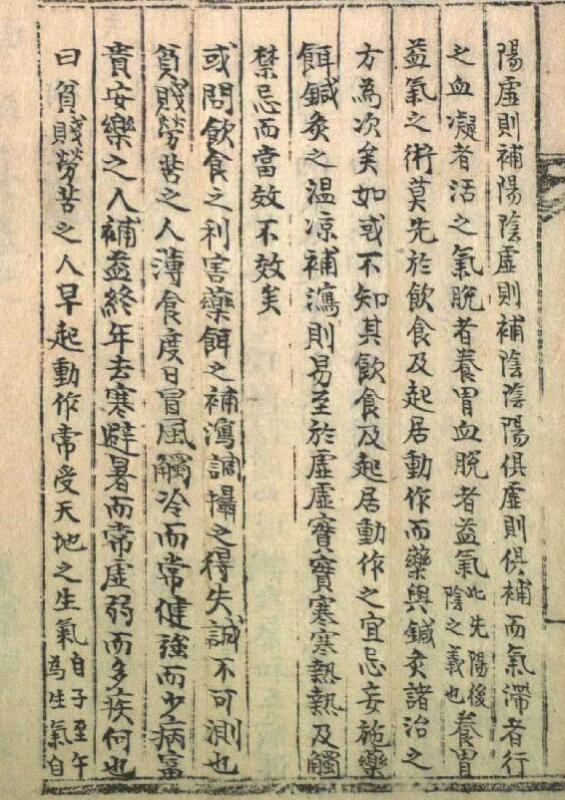 陽虛則補陽陰虛則補陰陰陽俱虛則俱補而氣滯者行
之血凝者活之氣脫者養胃血脫者益氣此先陽後陰之義也養胃
益氣之術莫先於飮食及起居動作而藥與鍼灸諸治之
方為次矣如或不知其飮食及起居動作之宜忌妄施藥
餌鍼灸之温凉補瀉則易至於虛虛實實寒寒熱熱及觸
禁忌而當效不效矣
或問飮食之利害藥餌之補瀉調攝之得失誠不可測也
貧賤勞苦之人薄食度日冒風觸冷而常健強而少病富
貴安樂之人補益終年去寒避暑而常虛弱而多疾何也
曰貧賤勞苦之人早起動作常受天地之生氣自子至午為生氣自